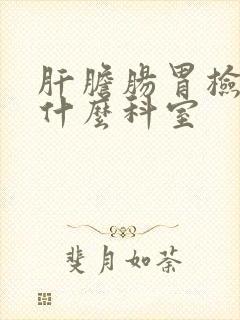 肝膽腸胃檢
什麼科室
斐月如荼